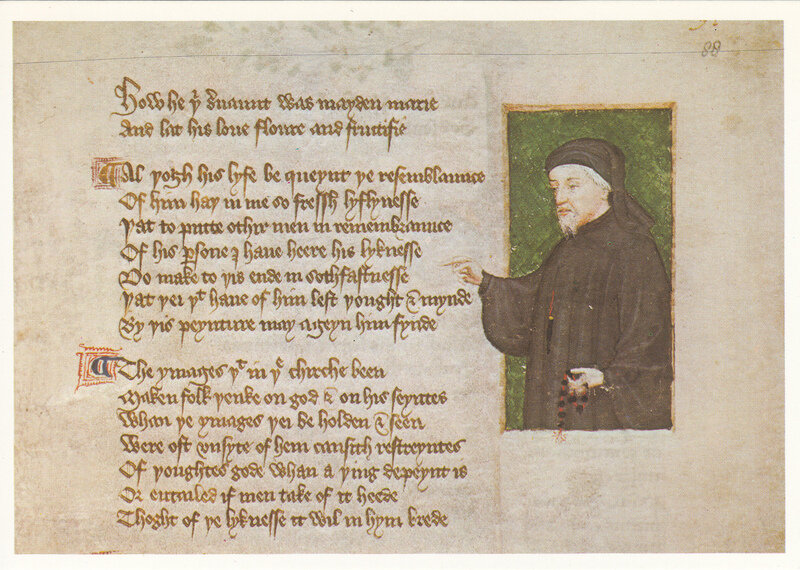 88
How he þͥ s̉uaunt was mayden marie
And lat his loue floure and fructifie
Al þogh his lyfe be queynt þe resemblaunce
Of him haþ in me so fressh lyflynesse
Þat to putte othir men in remembraunce
Of his ꝑsone I haue heere his lyknesse
Do make to þis ende in sothfastnesse
Þat þei þᵗ haue of him lest þought & mynde
By þis peynture may ageyn him fynde
The ymages þᵗ in þͤ chirche been
Maken folk þenke on god & on his seyntes
Whan þe ymages þei be holden & seen
Were oft vnsyte of hem causith restreyntes
Of þoughtes gode whan a þing depeynt is
Or entailed if men take of it heede
Thoght of þe lyknesse it wil in hym brede